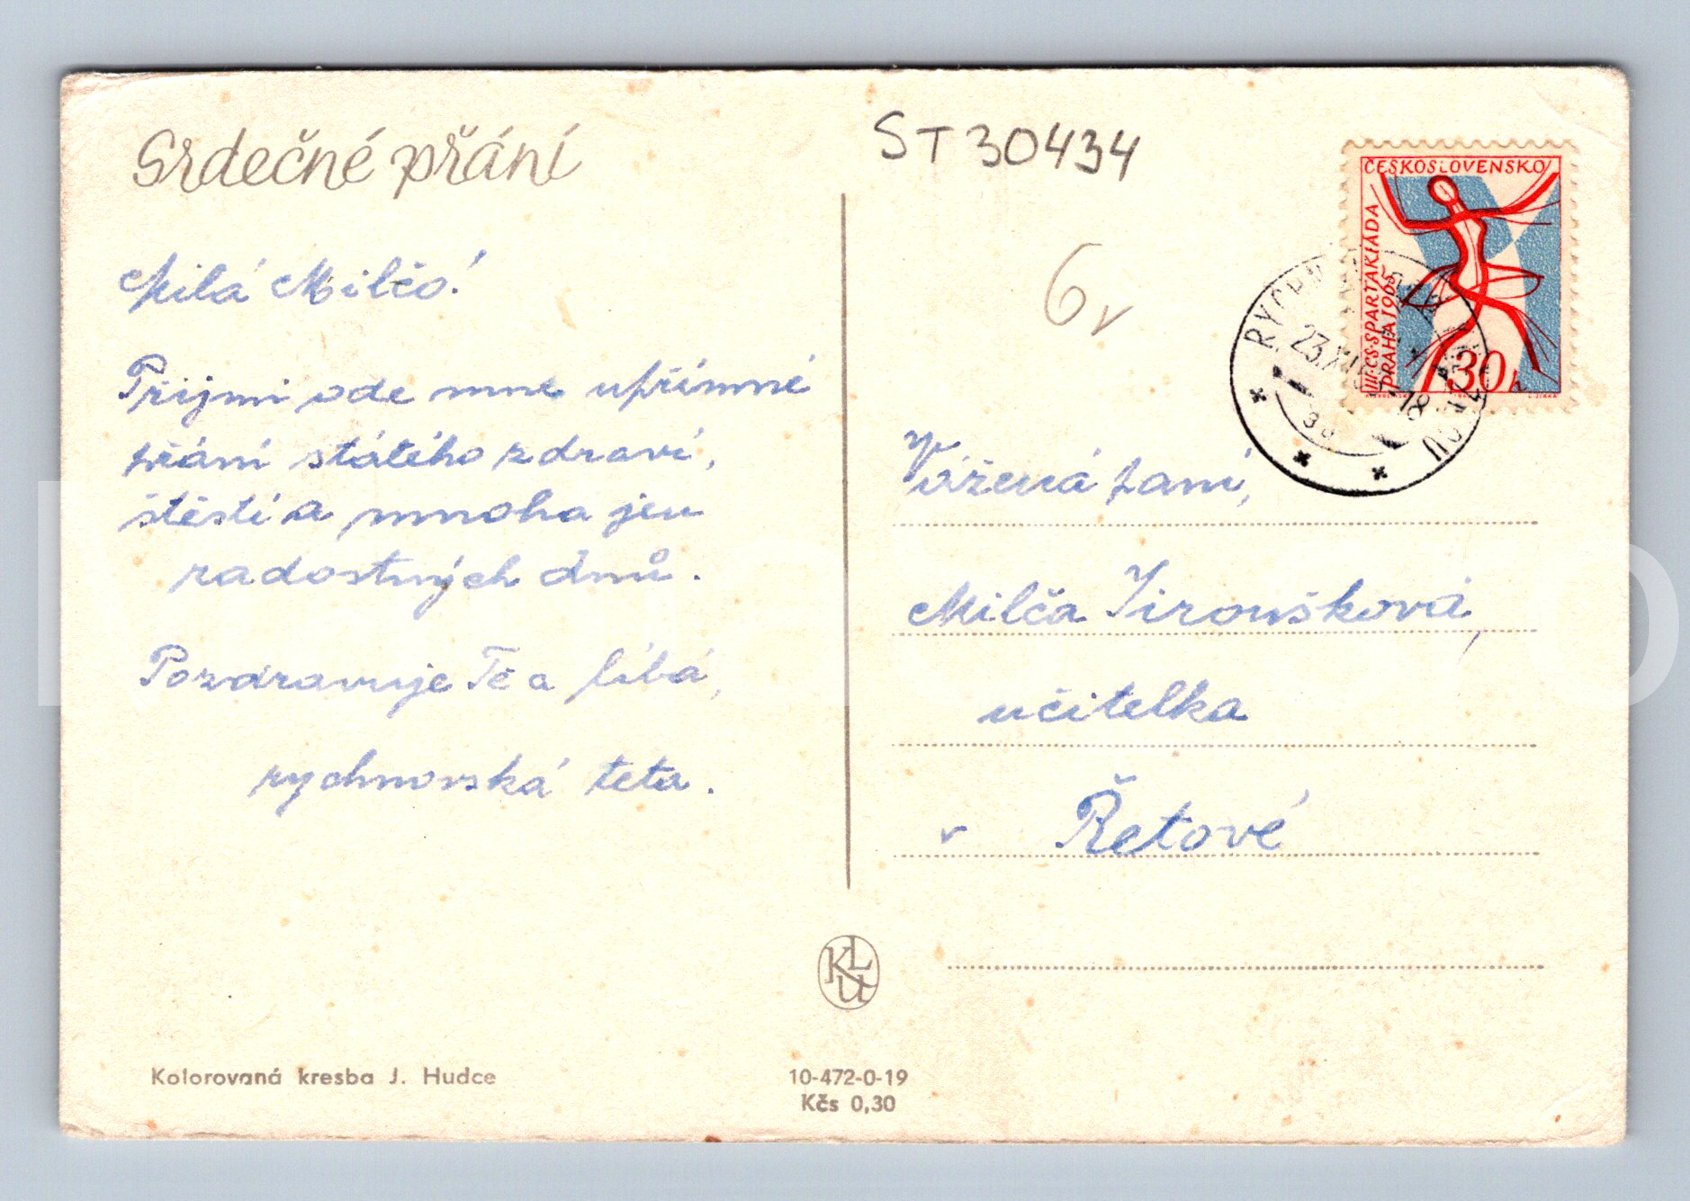 Srdečné přání
ST30434
6v
Milá Milčo!
Přijmi ode mne upřímné
přání stálého zdraví,
štěstí a mnoha jen
radostných dnů.
Pozdravuje Tě a líbá,
rychnovská teta.
ČESKOSLOVENSKO
III. CS. SPARTAKIÁDA
PRAHA 1965
30 h
Vážená paní,
Milča Jiroušková,
učitelka
v Řetové
KLU
Kolorovaná kresba J. Hudce
10-472-0-19
Kčs 0,30